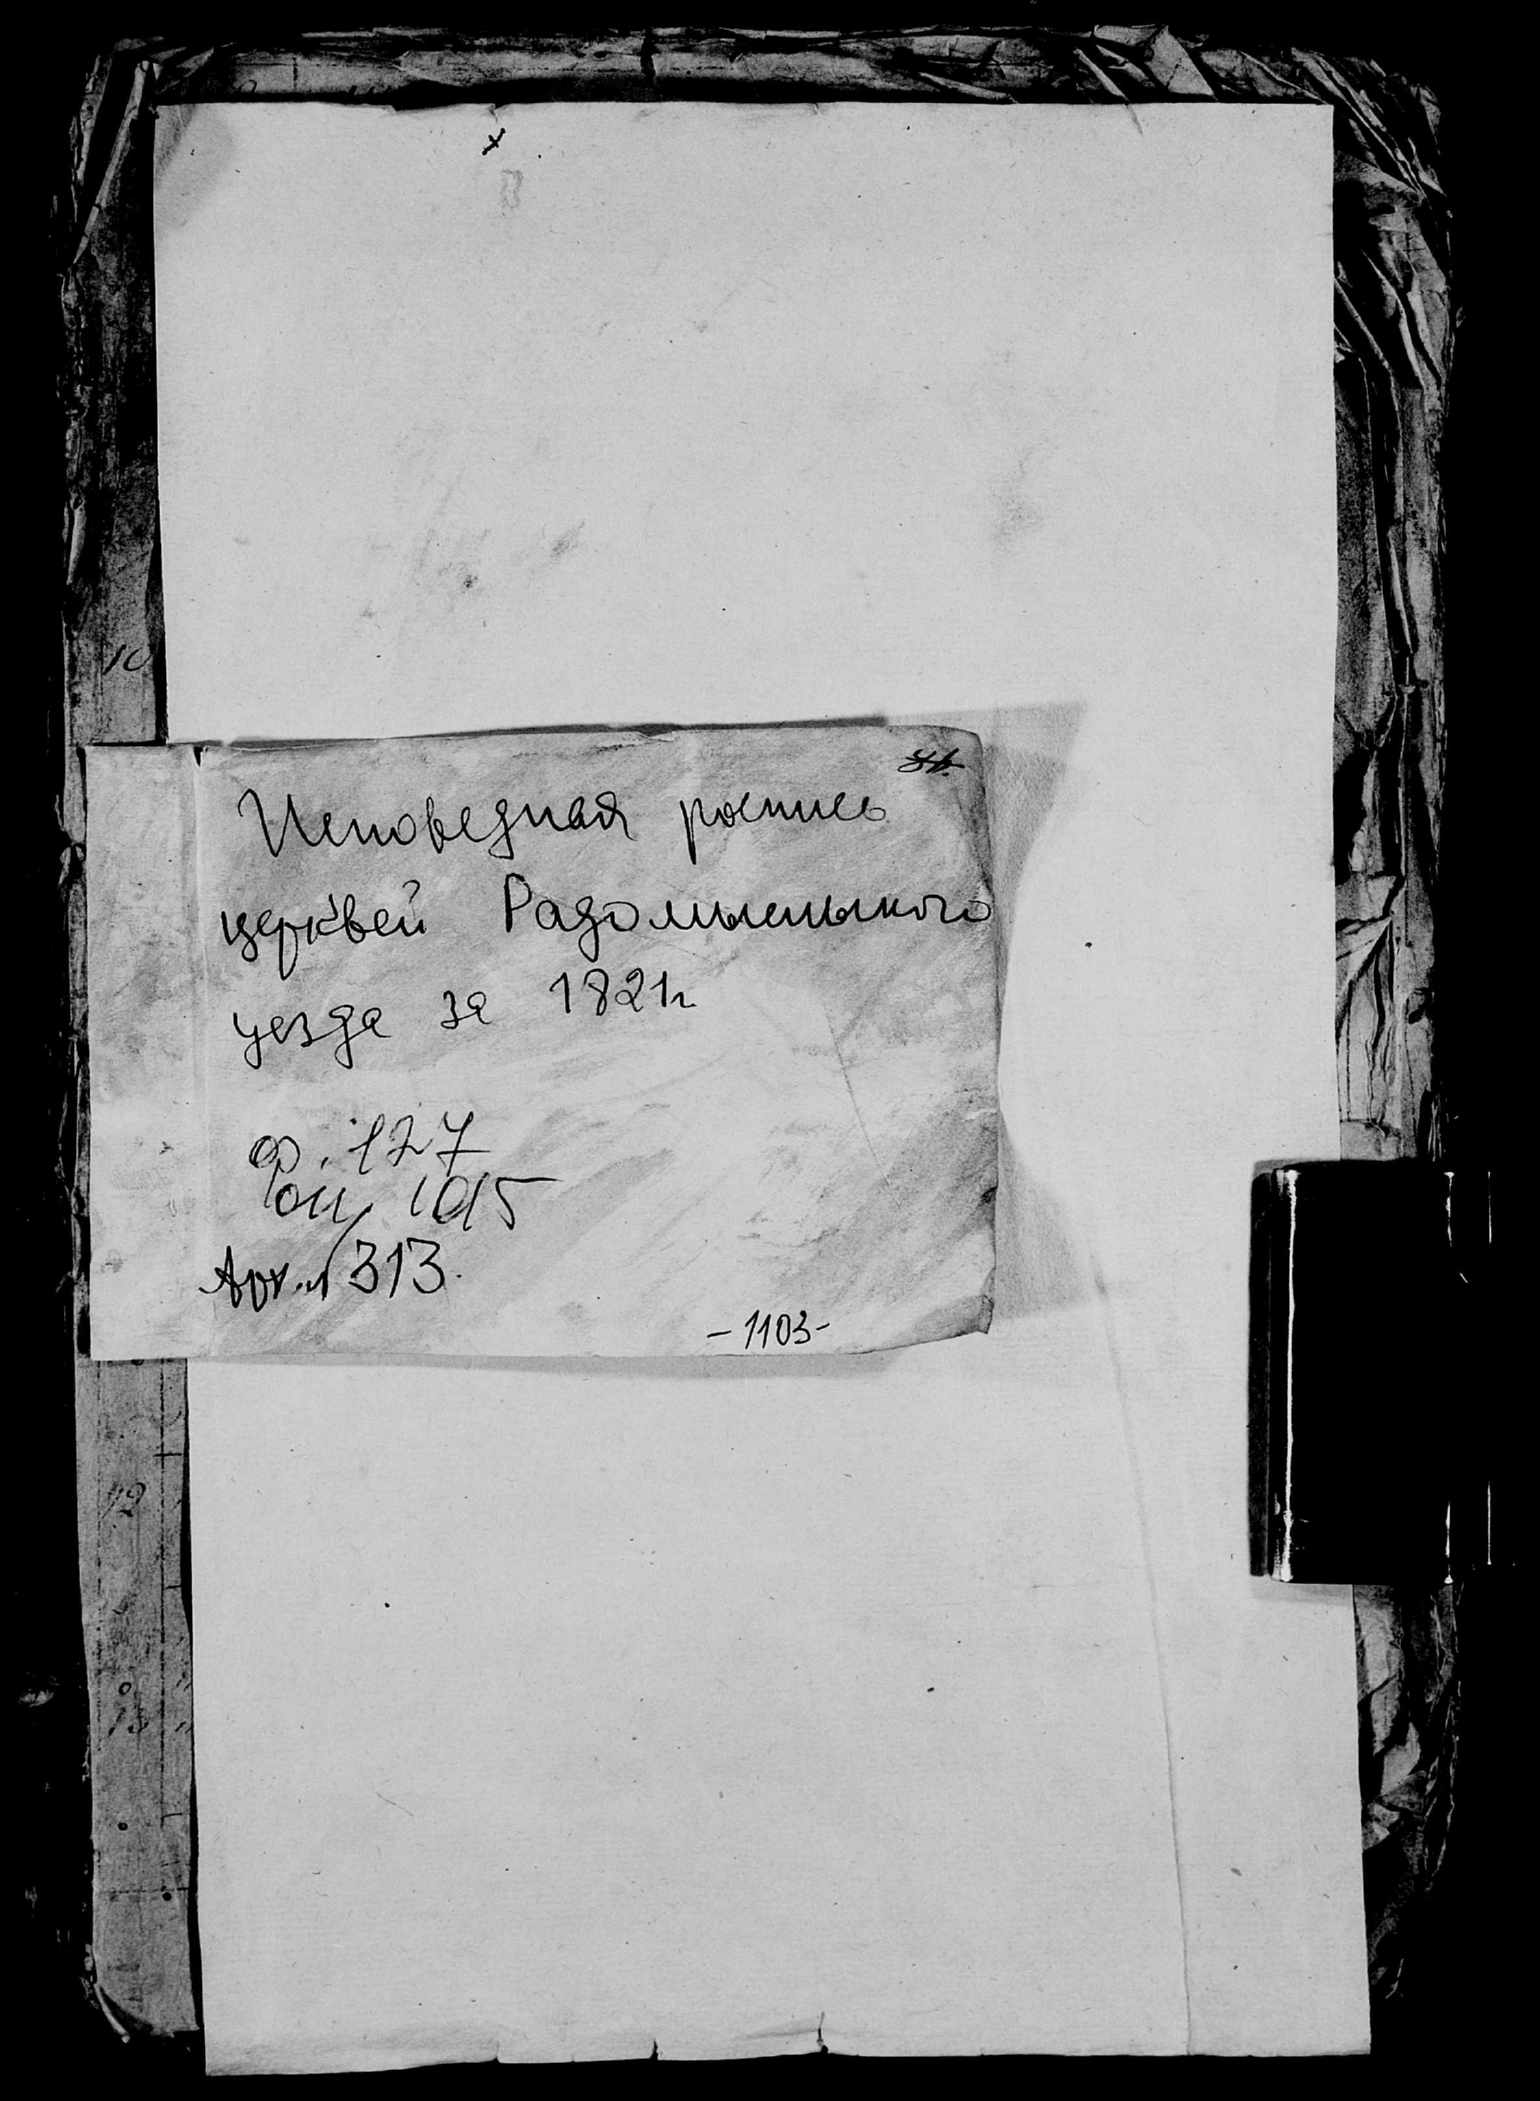 Исповедная роспись
церквей Радомысльского
уезда за 1821г
Ф. 127
Оп 1015
Арх. 313.
-1103-
10
12